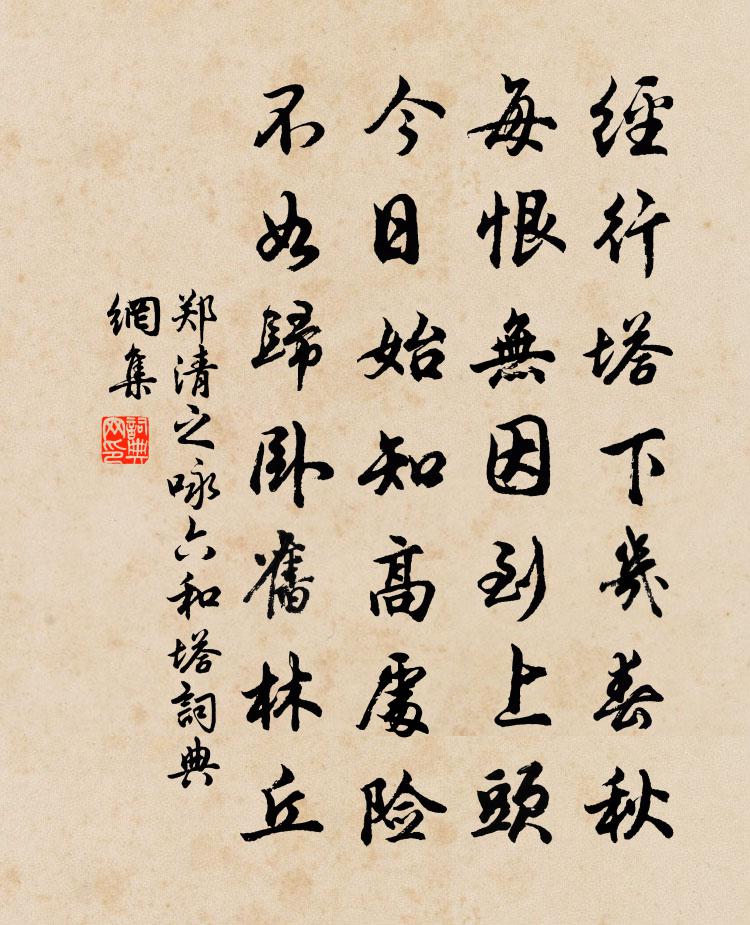 經行塔下幾春秋
每恨無因到上頭
今日始知高處险
不如歸卧舊林丘
郑清之咏六和塔詞典
網集
詞典
网印